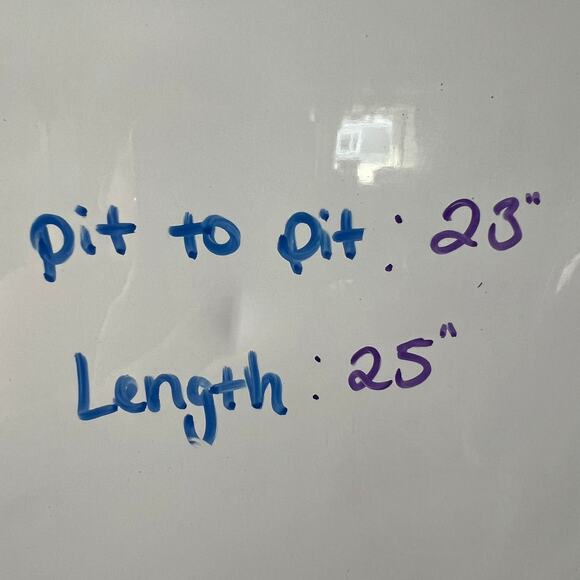 pit to pit : 23"
Length : 25"